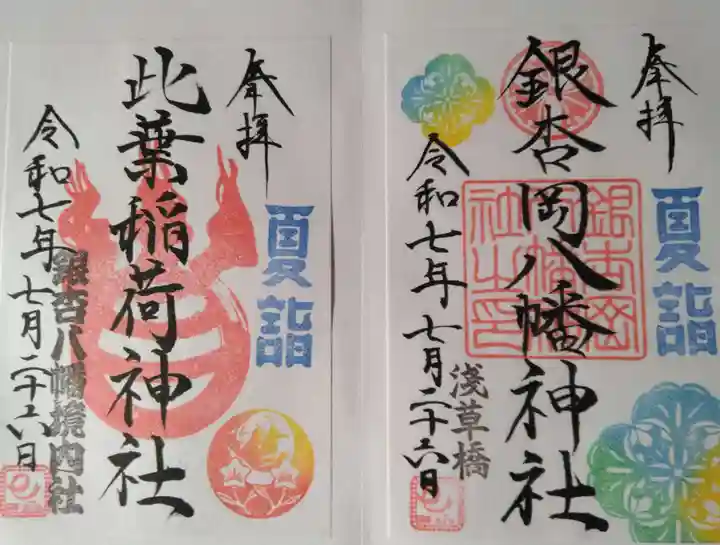 奉拝
夏詣
銀杏岡八幡神社
銀杏岡
八幡神
社之印
令和七年七月二十六日
浅草橋
奉拝
夏詣
此葉稲荷神社
令和七年七月二十六日
銀杏八幡境内社